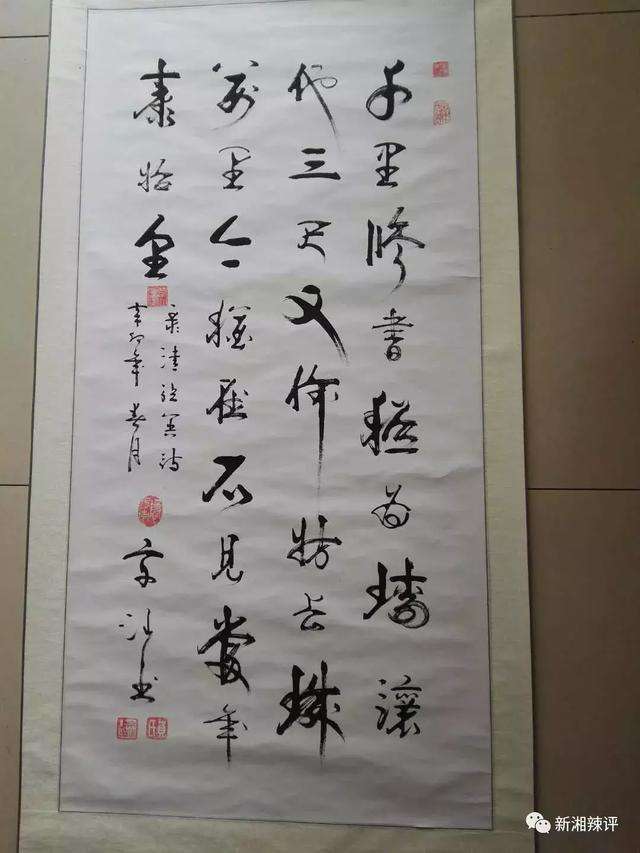 千里修書為墻讓
他三尺又何妨长城
萬里今猶在不見當年
秦始皇
录清張英詩
辛卯年春月
新湘辣评